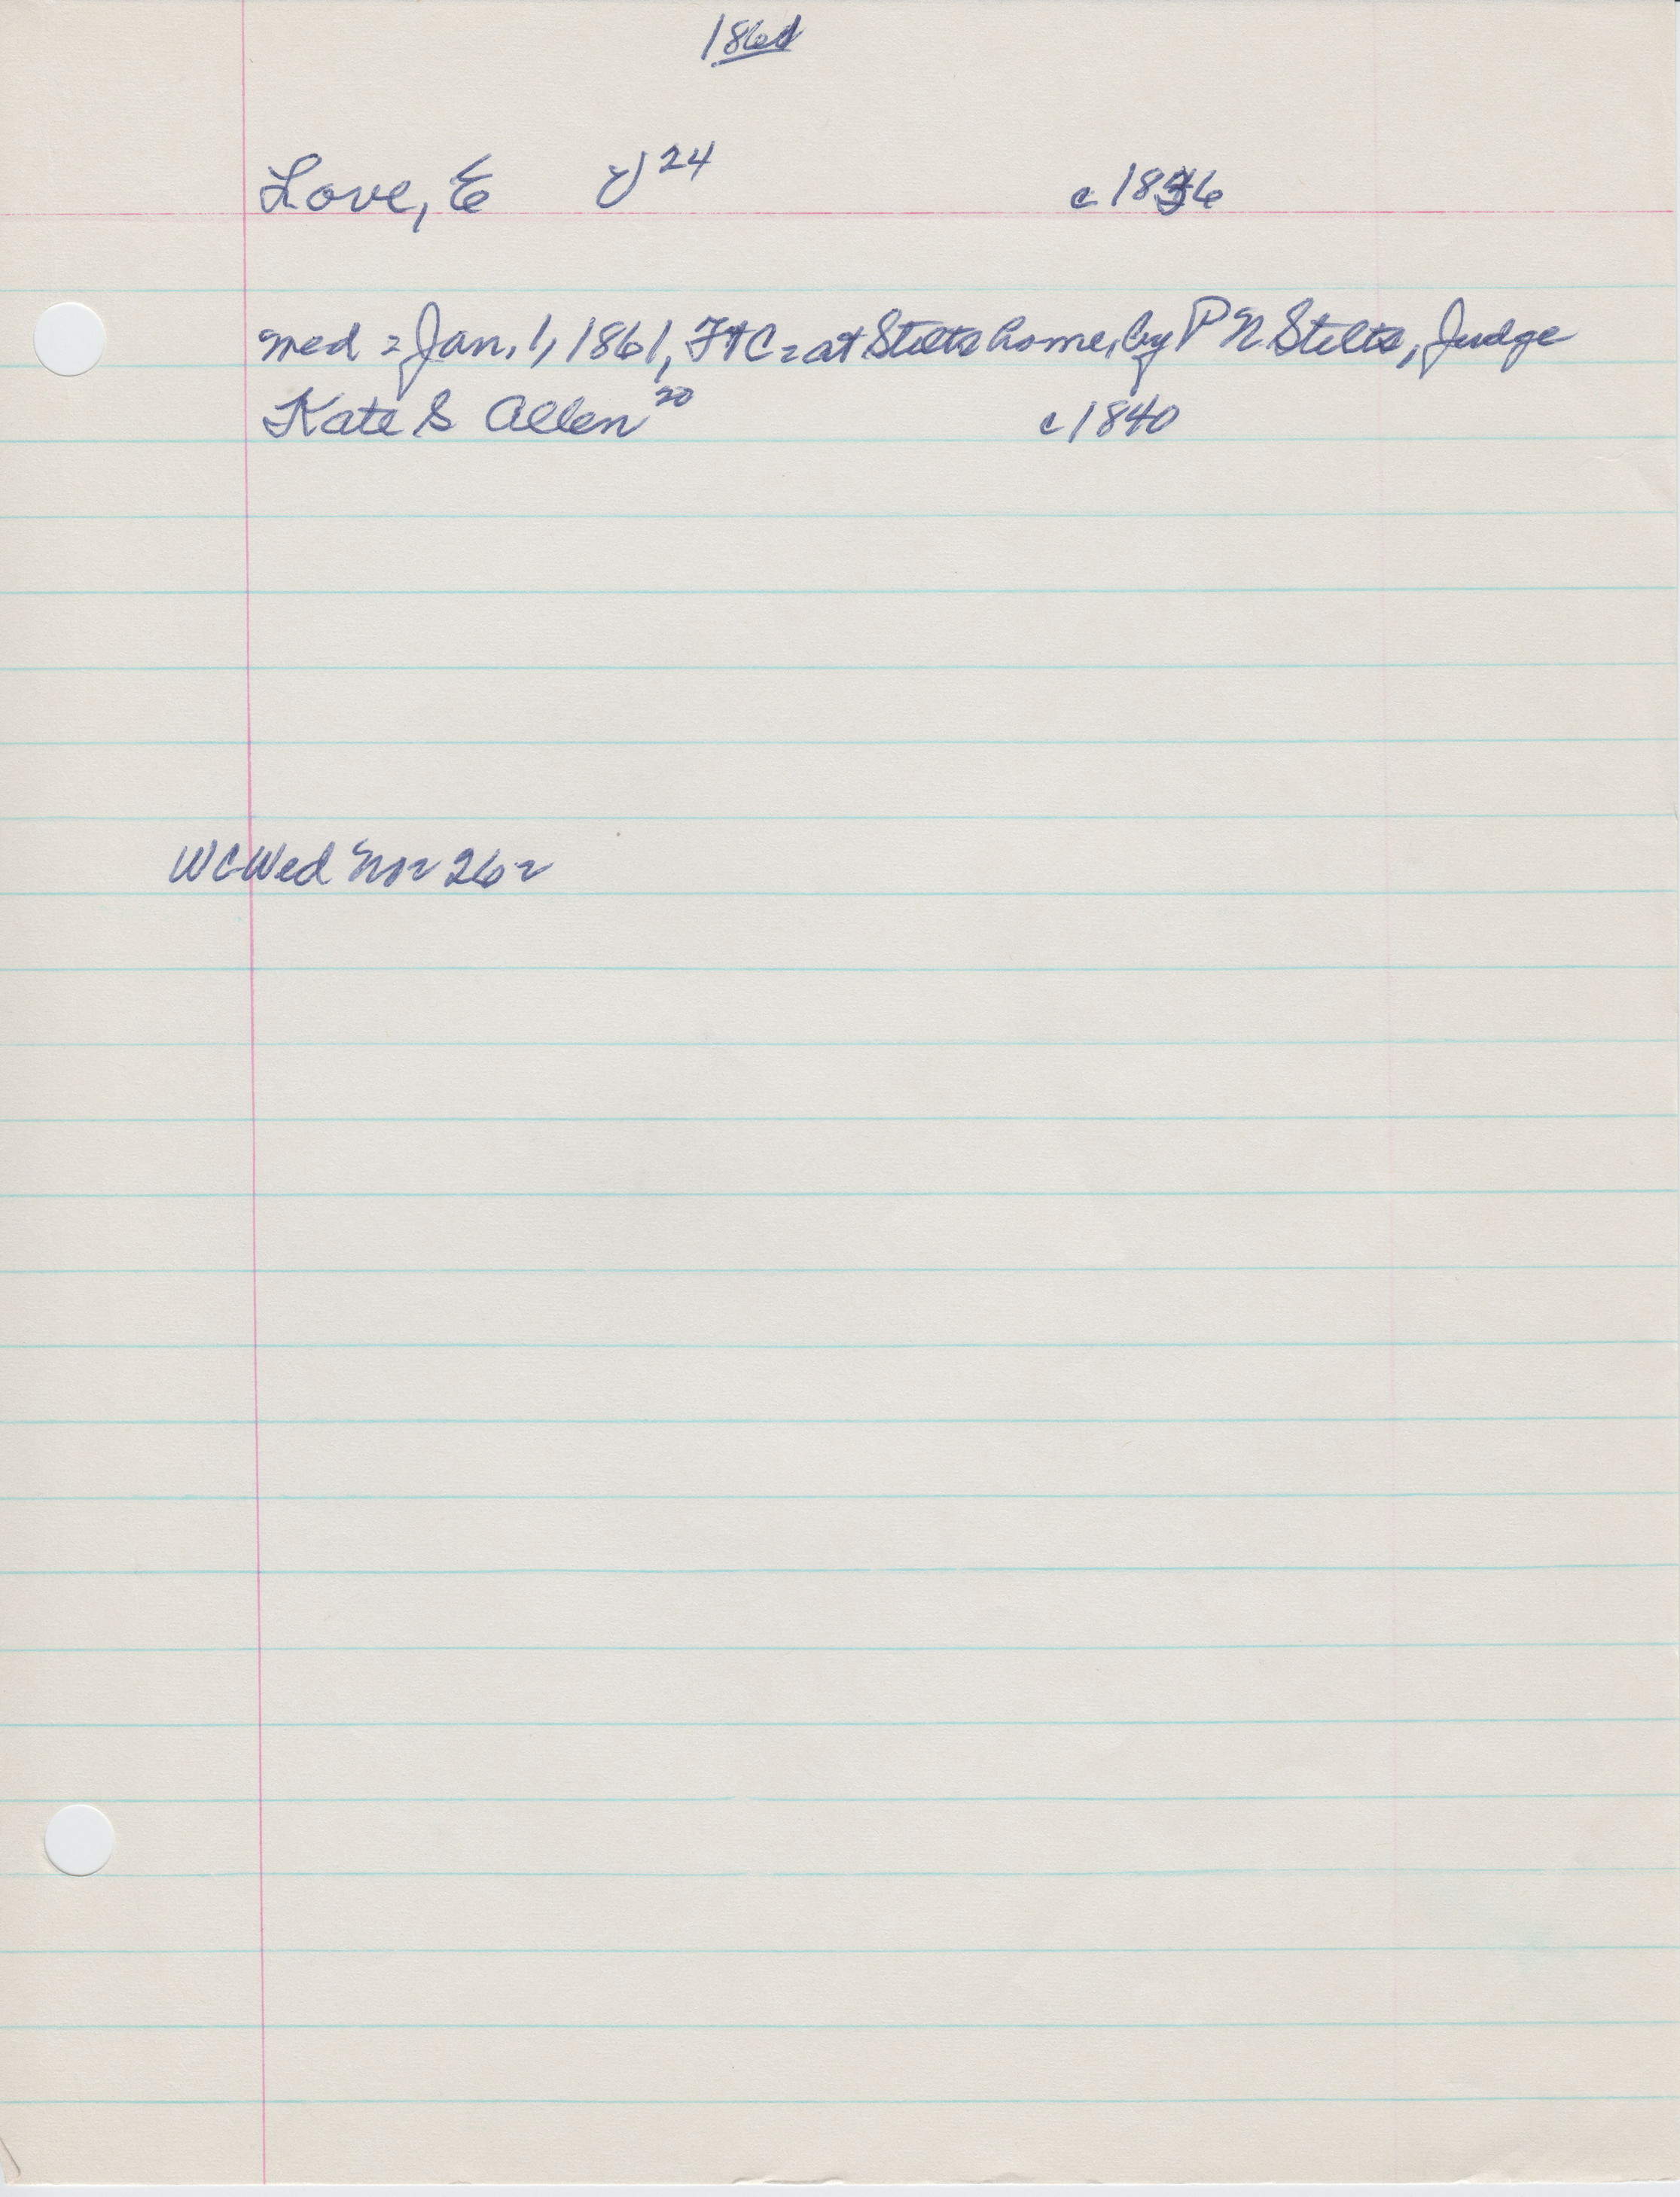 Love, E J 24 c 1836
med = Jan, 1, 1861, FTC = at Stelts home, by P N Stelts, Judge
Kate S Allen 20 c 1840
WC Wed Nov 26